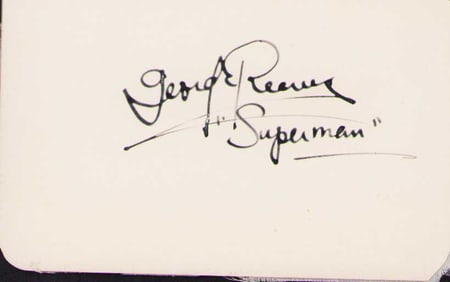 George Reeves
"Superman"